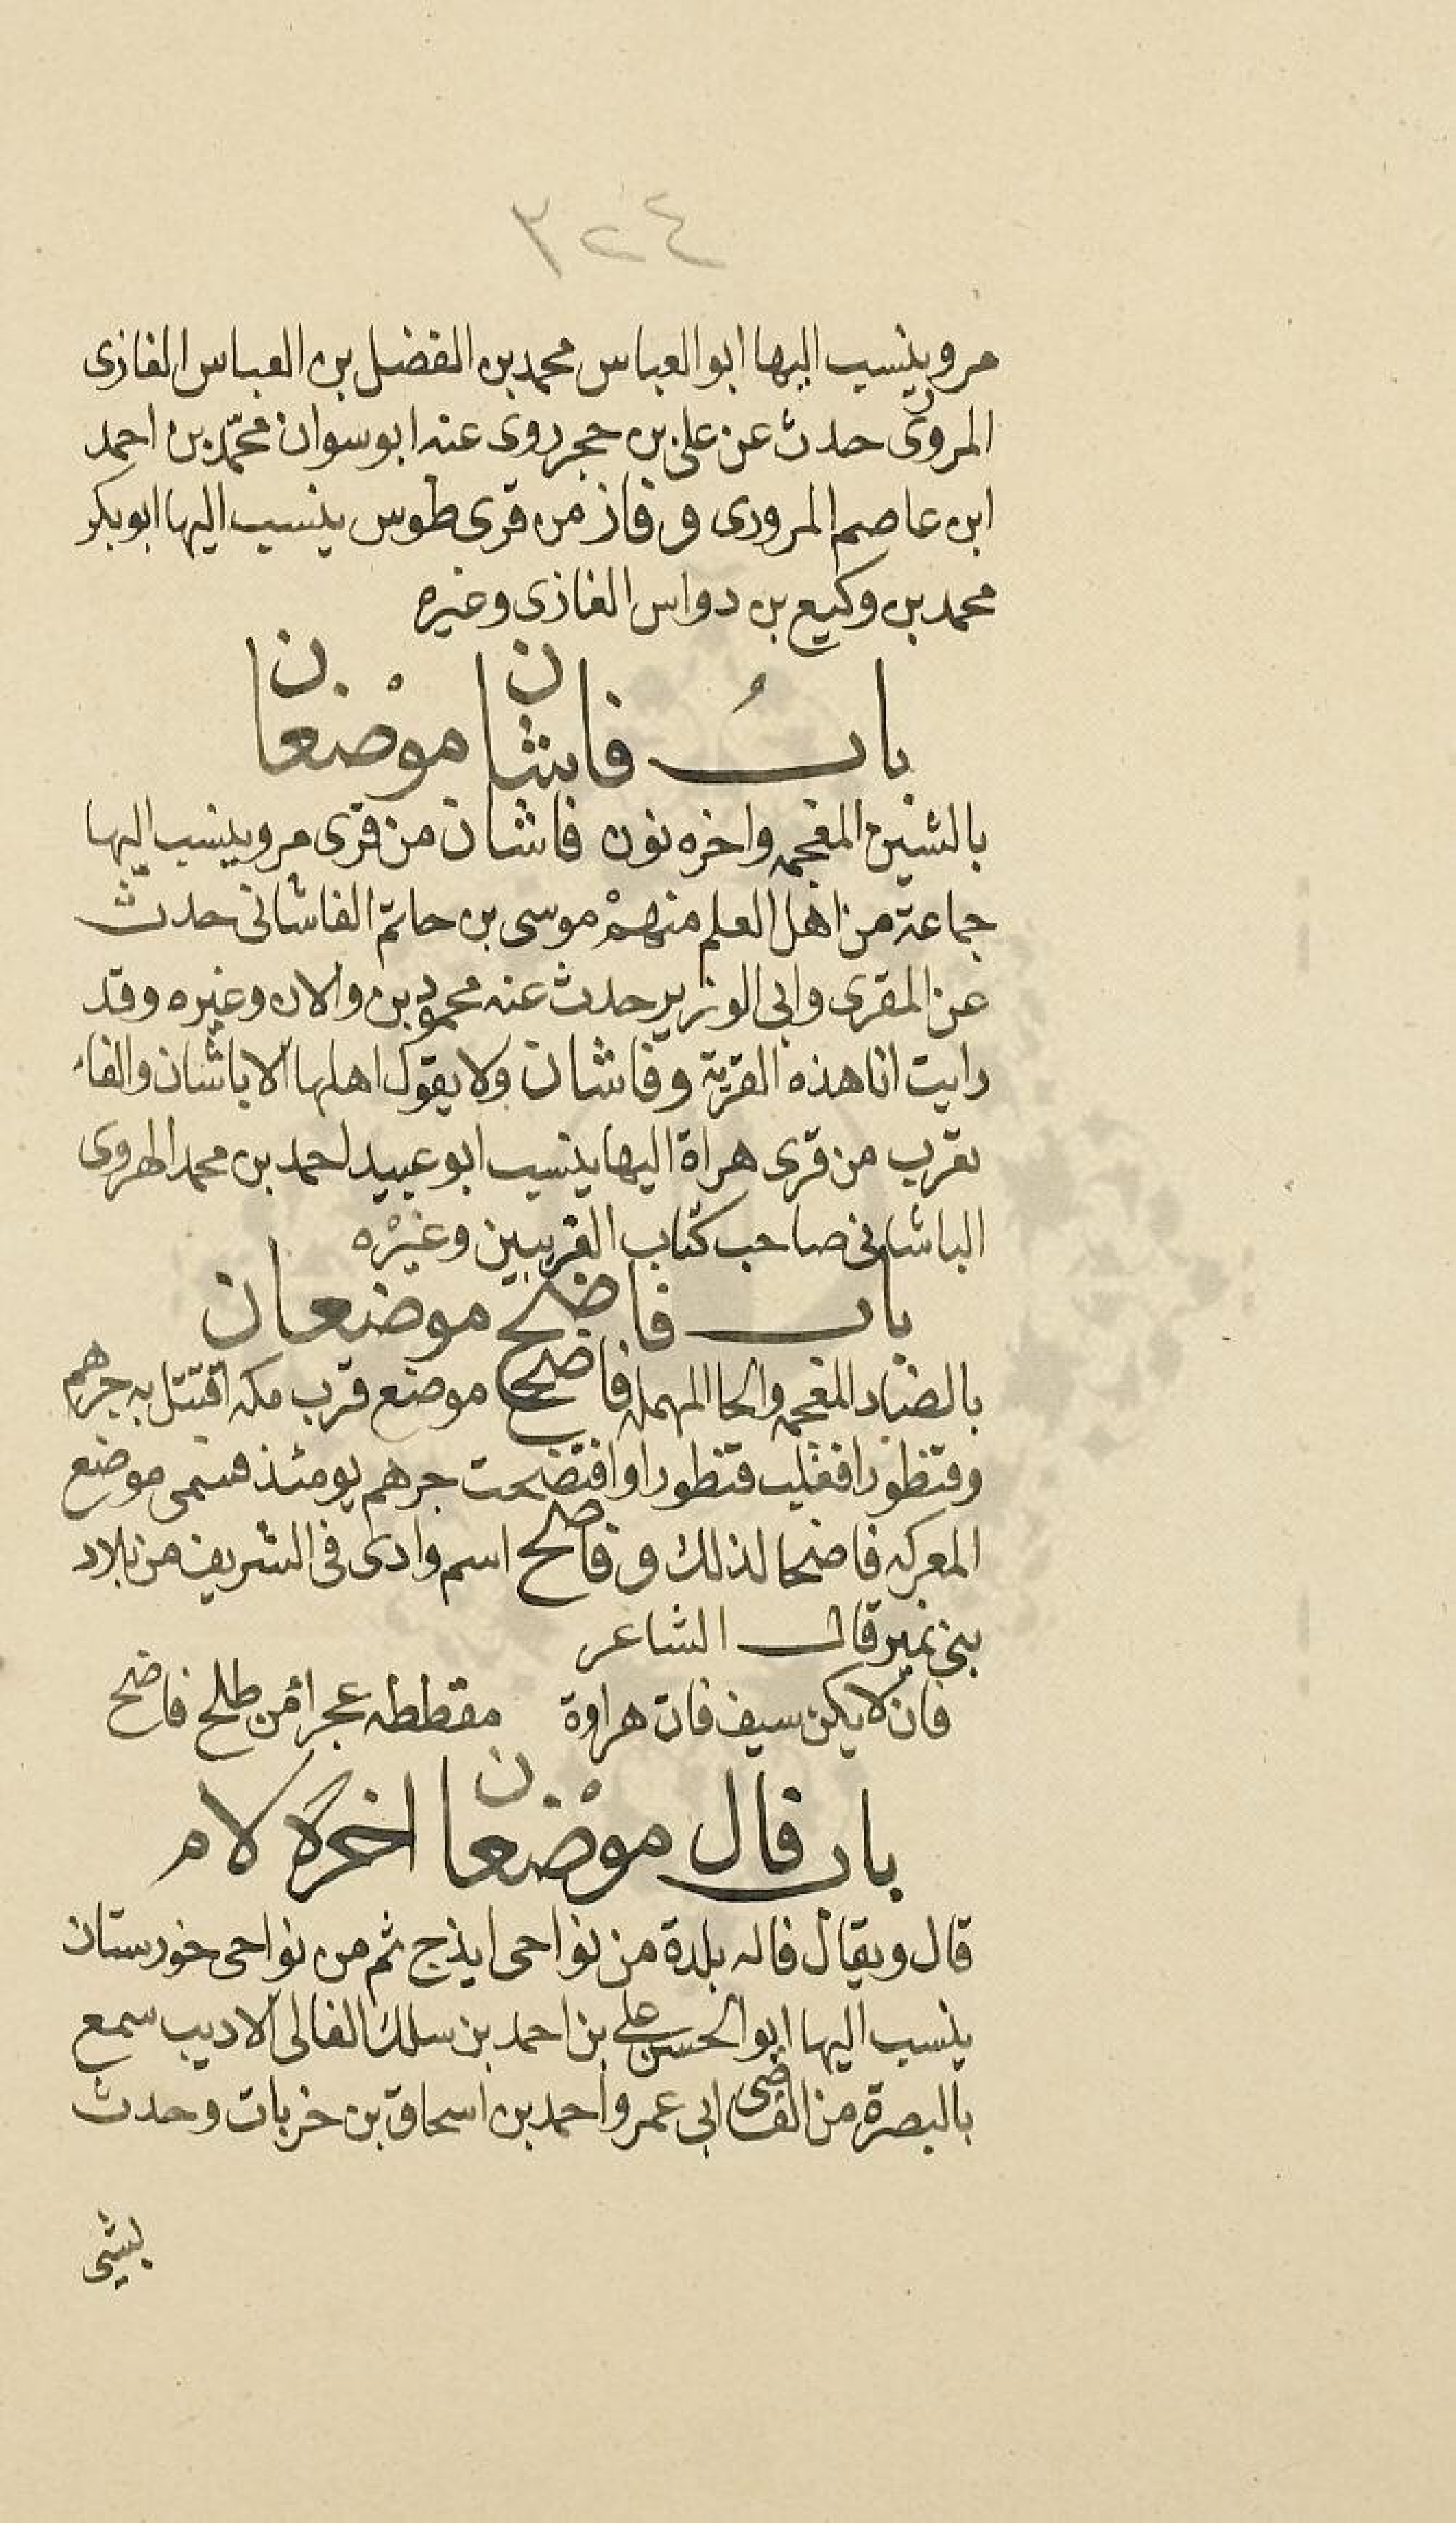 ٣٢٤
مرو ينسب اليها ابو العباس محمد بن الفضل بن العباس الفازى
المروزى حدث عن على بن حجر روى عنه ابو سوان محمّد بن احمد
ابن عاصم المرورى و فاز من قرى طوس ينسب اليها ابو بكر
محمد بن وكيع بن دواس الفازى وغيره
باب فاشان موضعان
بالشين المعجمه واخره نون فاشان من قرى مرو ينسب اليها
جماعة من اهل العلم منهم موسى بن حاتم الفاشانى حدث
عن المقرى وابى الوزير حدث عنه محمود بن والان وغيره وقد
رايت انا هذه القرية وفاشان ولا يقول اهلها الا باشان والفاء
تقرب من قرى هراة اليها ينسب ابو عبيد احمد بن محمد الهروى
الباشانى صاحب كتاب الغريبين وغيره
باب فاضح موضعان
بالضاد المعجمه والحا المهمله فاضح موضع قرب مكه اقتتل به جرهم
وقنطورا فغلبت قنطورا وافتضحت جرهم يومئذ فسمى موضع
المعركه فاضحا لذلك و فاضح اسم وادى فى الشريف من بلاد
بنى نمير قال الشاعر
فان لا يكن سيف فان هراوة مقططه عجرا من طلح فاضح
باب فال موضعان اخره لام
قال ويقال فاله بلدة من نواحى ايذج ثم من نواحى خورستان
ينسب اليها ابو الحسن على بن احمد بن سلك الفالى الاديب سمع
بالبصرة من القاضى ابى عمر واحمد بن اسحاق بن خربات وحدث
بشى